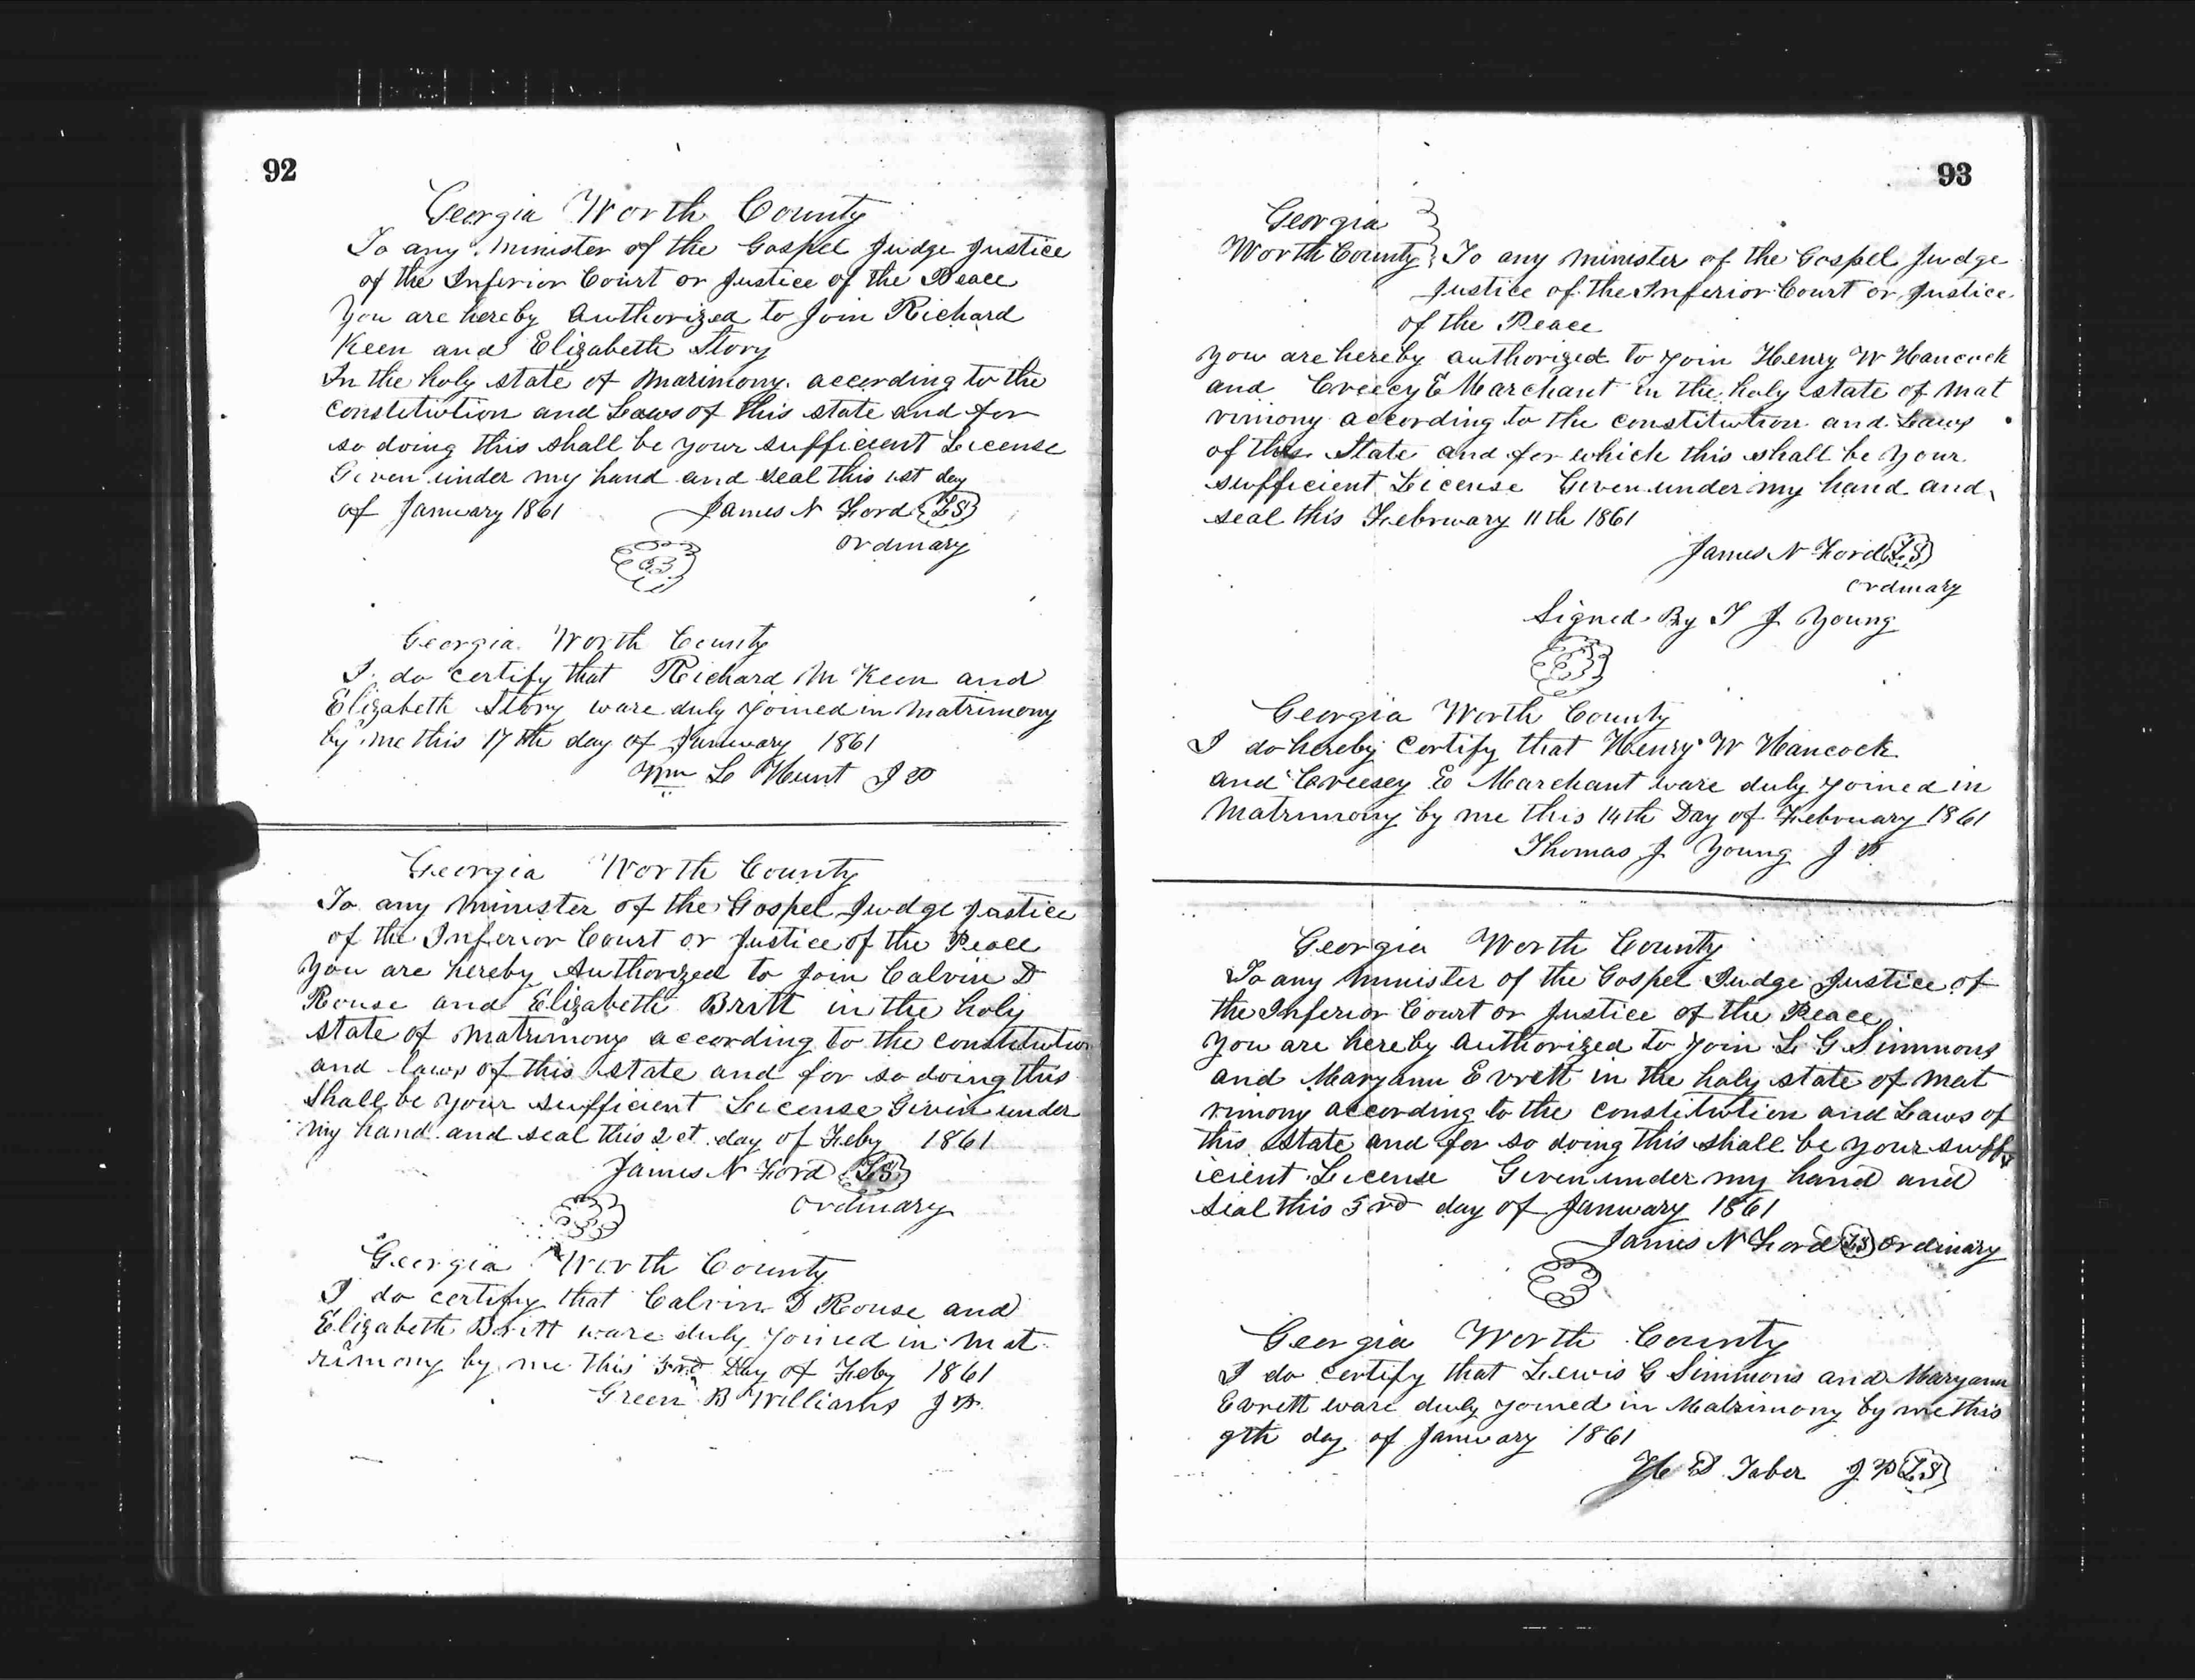 92
Georgia Worth County
To any minister of the Gospel Judge Justice
of the Inferior Court or Justice of the Peace
You are hereby Authorized to Join Richard
Keen and Elizabeth Story
In the holy state of Marimony according to the
constitution and Laws of this state and for
so doing this shall be your sufficient License
Given under my hand and seal this 1st day
of January 1861 James N Ford (LS)
Ordinary
Georgia Worth County
I do certify that Richard M Keen and
Elizabeth Story ware duly joined in Matrimony
by me this 17th day of January 1861
Wm L Hunt J P
Georgia Worth County
To any minister of the Gospel Judge Justice
of the Inferior Court or Justice of the Peace
You are hereby Authorized to Join Calvin D
Rouse and Elizabeth Britt in the holy
state of Matrimony according to the constitution
and laws of this state and for so doing this
shall be your sufficient License Given under
my hand and seal this day of Feby 1861
James N Ford (LS)
Ordinary
Georgia Worth County
I do certify that Calvin D Rouse and
Elizabeth Britt ware duly joined in mat
rimony by me this 3rd Day of Feby 1861
Green B Williams J P
93
Georgia
Worth County To any minister of the Gospel Judge
Justice of the Inferior Court or Justice
of the Peace
You are hereby authorized to join Henry W Hancock
and Creecy E Marchant in the holy state of mat
rimony according to the constitution and Laws
of this State and for which this shall be your
sufficient License Given under my hand and
seal this February 11th 1861
James N Ford (LS)
Ordinary
Signed By T J Young
Georgia Worth County
I do hereby certify that Henry W Hancock
and Creesey E Marchant ware duly joined in
Matrimony by me this 14th Day of February 1861
Thomas J Young J P
Georgia Worth County
To any minister of the Gospel Judge Justice of
the Inferior Court or Justice of the Peace
You are hereby Authorized to join L G Simmons
and Maryann Evrett in the holy state of mat
rimony according to the constitution and Laws of
this state and for so doing this shall be your suff
icient License Given under my hand and
seal this 3rd day of January 1861
James N Ford (LS) Ordinary
Georgia Worth County
I do certify that Lewis G Simmons and Maryann
Evrett ware duly joined in Matrimony by me this
9th day of January 1861
H D Taber J P (LS)